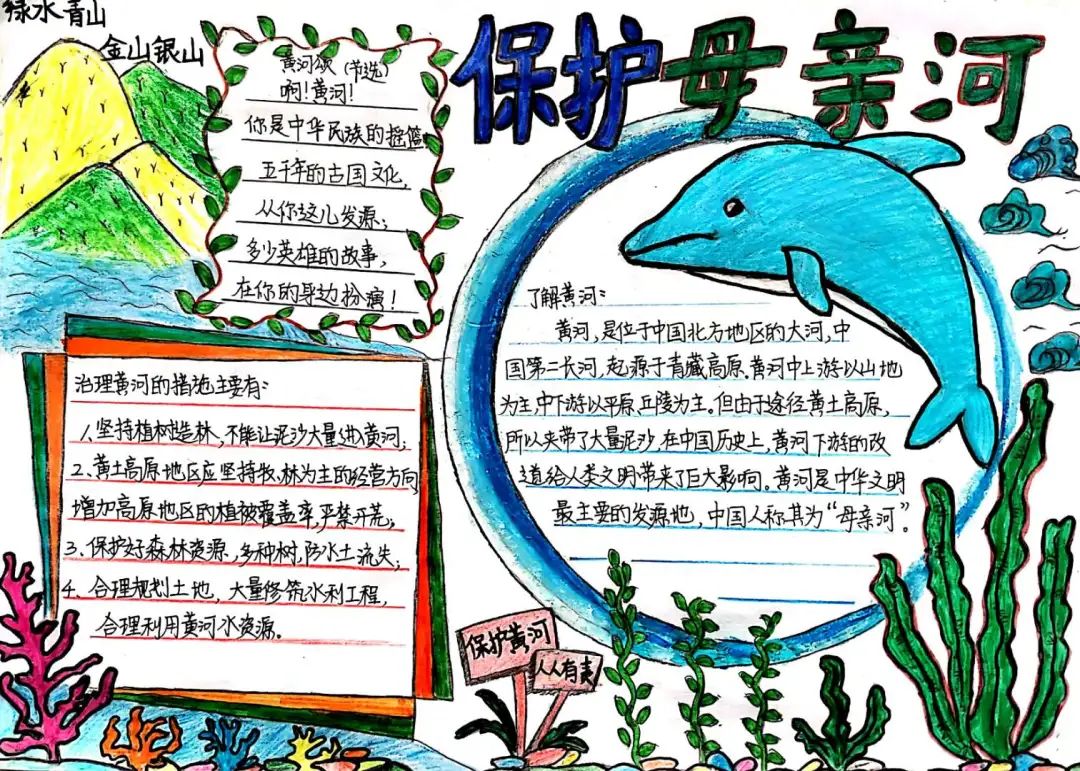 绿水青山
金山银山
保护母亲河
黄河颂(节选)
啊!黄河!
你是中华民族的摇篮
五千年的古国文化,
从你这儿发源;
多少英雄的故事,
在你的身边扮演!
了解黄河:
黄河,是位于中国北方地区的大河,中
国第二长河,起源于青藏高原、黄河中上游以山地
为主,中下游以平原、丘陵为主。但由于途径黄土高原,
所以夹带了大量泥沙,在中国历史上,黄河下游的改
道给人类文明带来了巨大影响。黄河是中华文明
最主要的发源地,中国人称其为“母亲河”。
治理黄河的措施主要有:
1.坚持植树造林,不能让泥沙大量进入黄河;
2.黄土高原地区应坚持牧、林为主的经营方向
增加高原地区的植被覆盖率,严禁开荒;
3.保护好森林资源,多种树,防水土流失;
4.合理规划土地,大量修筑水利工程,
合理利用黄河水资源。
保护黄河
人人有责